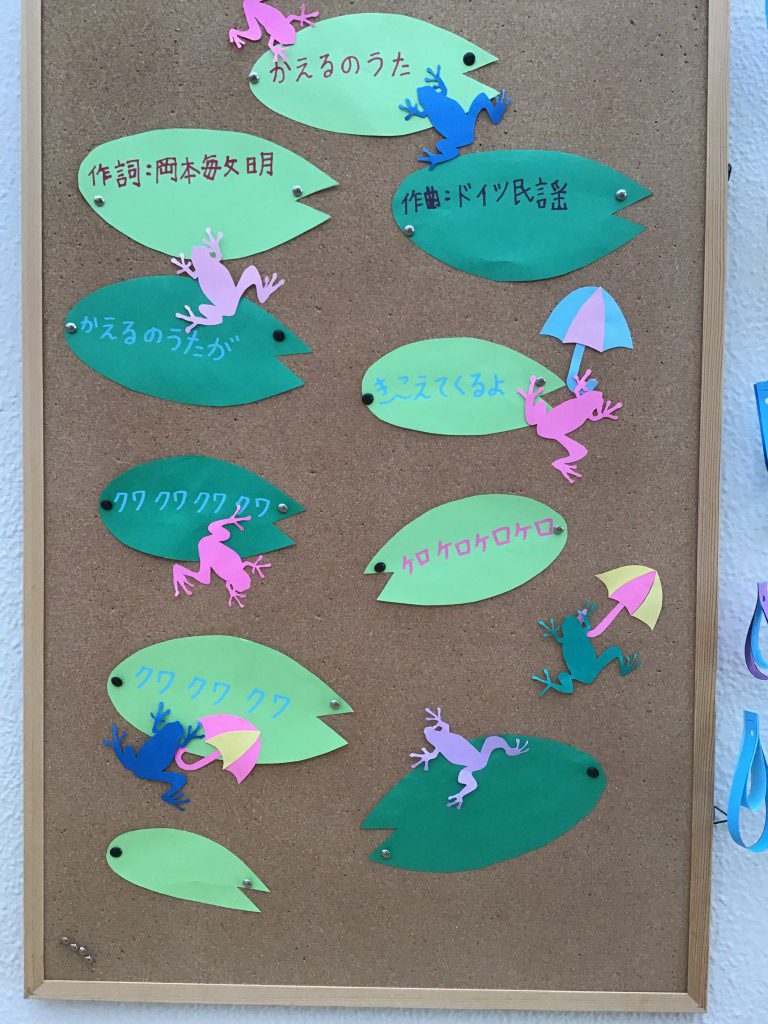 かえるのうた
作詞:岡本敏明
作曲:ドイツ民謡
かえるのうたが
きこえてくるよ
クワ クワ クワ クワ
ケロ ケロ ケロ ケロ
クワ クワ クワ